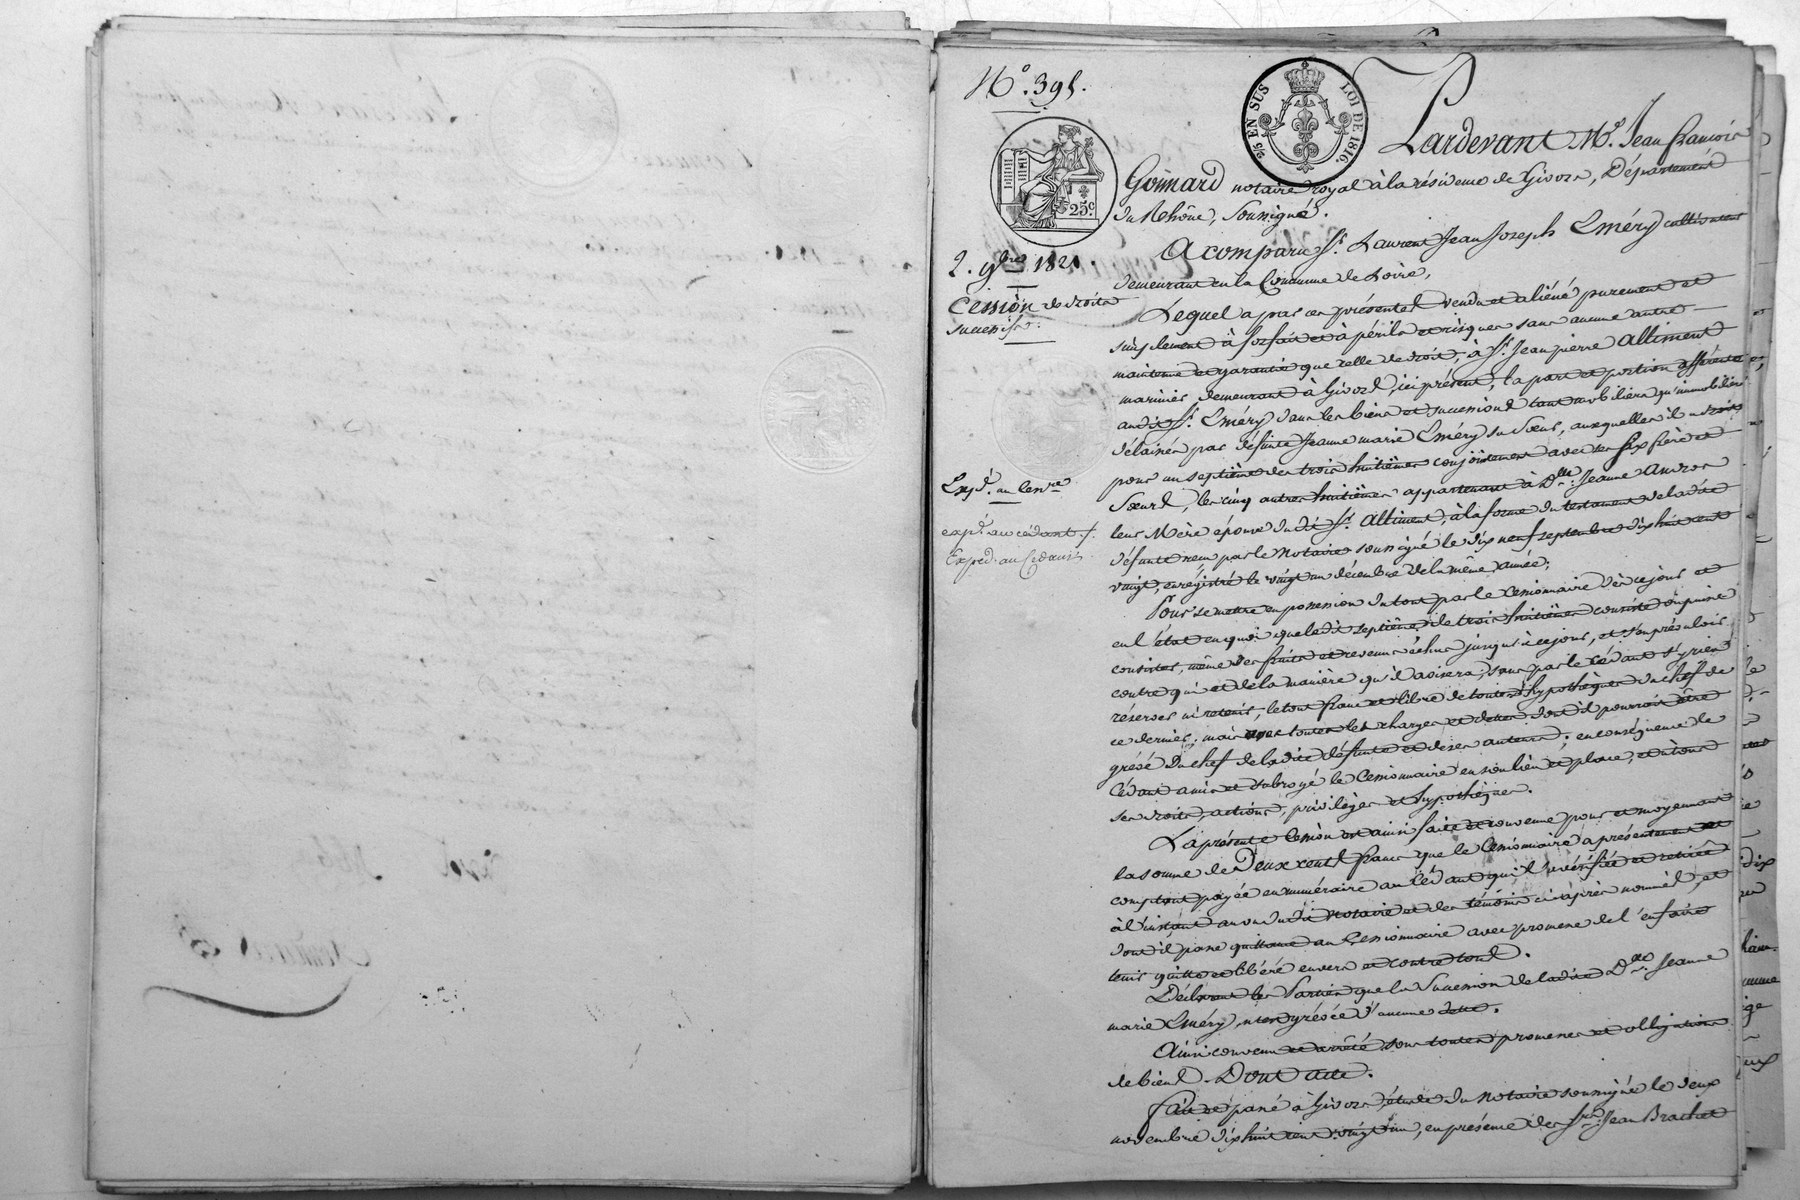 N.° 395.
2/5 EN SUS
LOI DE 1816.
25c.
Pardevant M.e Jean françois
Goinnard notaire royal à la résidence de Givors, Département
du Rhône, Soussigné.
2. 9bre 1821.
Cession de droits
successifs.
A comparu Sr. Laurent Jean Joseph Eméry cultivateur
demeurant en la Commune de Loire,
Lequel a par ces présentes vendu et aliéné purement et
simplement à forfait et à périls et risques sans aucune autre
maintenue et garantie que celle de droit, à Sr. Jean pierre Alliment
marinier, demeurant à Givors, ici présent, la part et portion afférente
audit Sr. Eméry dans les biens et successions tant mobiliers qu'immobiliers
délaissés par défunte Jeanne marie Eméry sa Sœur, auxquelles il a droit
pour un septième des trois huitièmes conjointement avec ses six frère et
Sœurs, les cinq autres huitièmes appartenant à Dlle. Jeanne
leur Mère épouse du dit Sr. Alliment, à la forme du testament de la dite
défunte reçu par le Notaire soussigné le dix neuf septembre dix huit cent
vingt, enregistré le vingt un décembre de la même année;
Expé. au cessre
expé. au cédant f.
Expéd. au Cédant
Pour se mettre en possession du tout par le Cessionnaire dès ce jour et
en l'état en quoi que le dit septième de trois huitièmes consiste ou puisse
consister, même des fruits et revenus échus jusqu'à ce jour, et s'en prévaloir
contre qui et de la manière qu'il avisera, sans par le Cédant s'y rien
réserver ni retenir, le tout franc et libre de toutes hypothèques du chef de
ce dernier, mais avec toutes les charges et dettes dont il pourrait être
grévé du chef de la dite défunte et de ses auteurs; en conséquence le
Cédant a mis et subrogé le Cessionnaire en son lieu et place, et en tous
ses droits, actions, privilèges et hypothèques.
La présente Cession est ainsi faite et convenue pour et moyennant
la somme de Deux cents francs que le Cessionnaire a présentement et
comptant payée en numéraire au Cédant qui l'a vérifiée et retirée
à l'instant au vu du dit Notaire et des témoins ci-après nommés, et
dont il passe quittance au Cessionnaire avec promesse de l'en faire
tenir quitte et libéré envers et contre tous.
Déclarant les Parties que la Succession de la dite Dlle. Jeanne
marie Eméry, n'est grévée d'aucune dette.
Ainsi convenu et arrêté, sous toutes promesses et obligations
de biens. Dont acte.
Fait et passé à Givors, étude du Notaire soussigné le deux
novembre dix huit cent vingt un, en présence des Srs. Jean Brachet